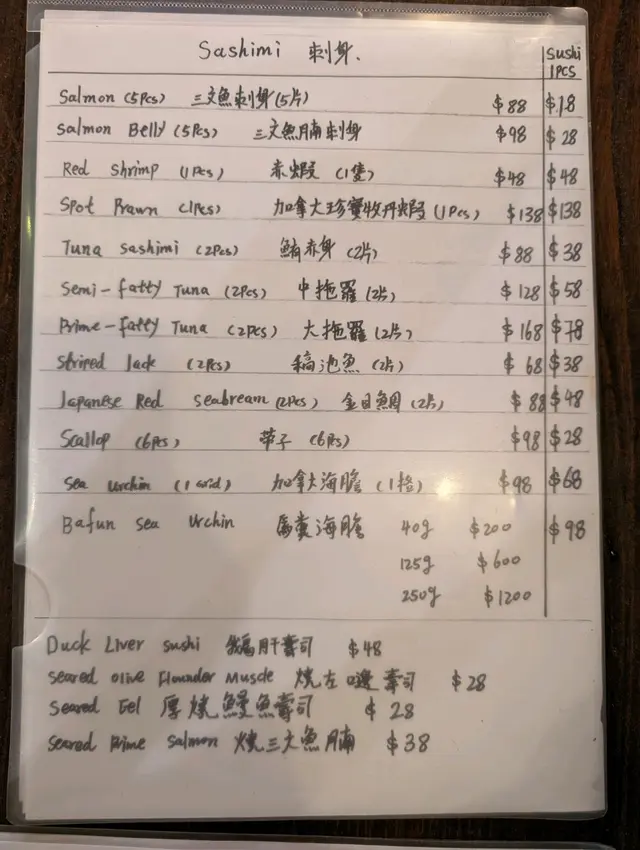 Sashimi 刺身. Sushi 1pcs
Salmon (5pcs) 三文魚刺身(5片) $88 $18
Salmon Belly (5pcs) 三文魚腩刺身 $98 $28
Red shrimp (1pcs) 赤蝦 (1隻) $48 $48
Spot Prawn (1pcs) 加拿大珍寶牧丹蝦 (1pcs) $138 $138
Tuna sashimi (2pcs) 鮪赤身 (2片) $88 $38
Semi-fatty Tuna (2pcs) 中拖羅 (2片) $128 $58
Prime-fatty Tuna (2pcs) 大拖羅 (2片) $168 $78
Striped Jack (2pcs) 稿池魚 (2片) $68 $38
Japanese Red seabream (2pcs) 金目鯛 (2片) $88 $48
Scallop (6pcs) 帶子 (6pcs) $98 $28
Sea urchin (1 grid) 加拿大海膽 (1格) $98 $68
Bafun Sea Urchin 馬糞海膽 40g $200 $98
125g $600
250g $1200
Duck Liver sushi 鵝肝壽司 $48
Seared olive Flounder Muscle 燒左口邊壽司 $28
Seared Eel 厚燒鰻魚壽司 $28
Seared Prime Salmon 燒三文魚腩 $38